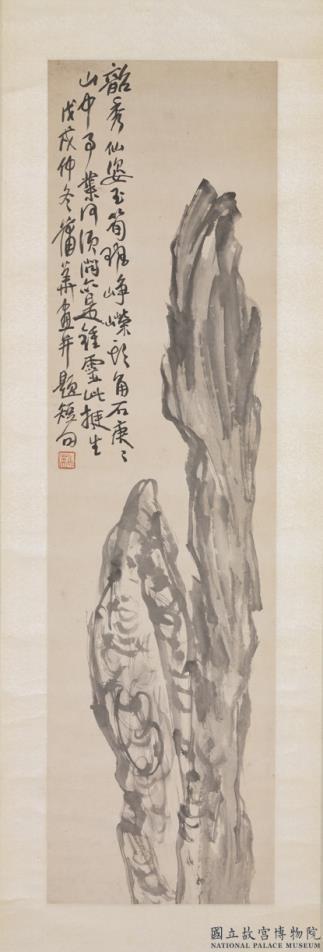 韶秀仙姿玉筍班崢嶸頭角石庚〻
山中事業何須問亦是鍾靈此挺生
戊戌仲冬蒲華畫并題短句
國立故宮博物院
NATIONAL PALACE MUSEUM